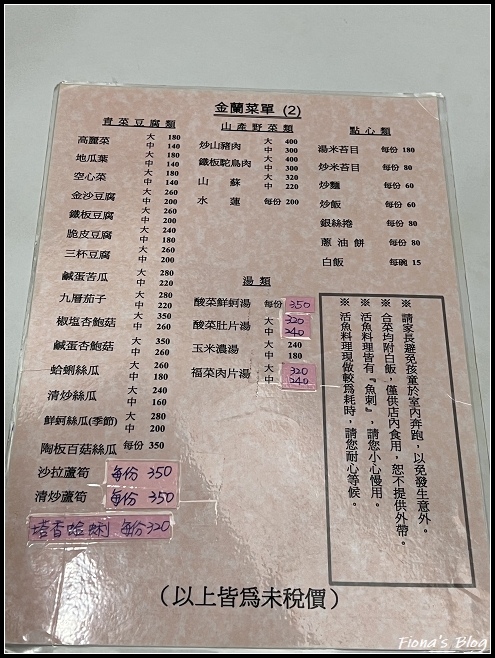 金蘭菜單 (2)
青菜豆腐類
高麗菜 大 180
中 140
地瓜葉 大 180
中 140
空心菜 大 180
中 140
金沙豆腐 大 260
中 200
鐵板豆腐 大 260
中 200
脆皮豆腐 大 260
中 200
三杯豆腐 大 260
中 200
鹹蛋苦瓜 大 280
中 220
九層茄子 大 280
中 220
椒塩杏鮑菇 大 350
中 260
鹹蛋杏鮑菇 大 350
中 260
蛤蜊絲瓜 大 240
中 180
清炒絲瓜 大 240
中 160
鮮蚵絲瓜(季節) 大 280
中 200
陶板百菇絲瓜 每份 350
沙拉蘆筍 每份 350
清炒蘆筍 每份 350
塔香蛤蜊 每份320
山產野菜類
炒山豬肉 大 400
中 300
鐵板駝鳥肉 大 400
中 300
山蘇 大 320
中 220
水蓮 每份 200
湯類
酸菜鮮蚵湯 每份 350
酸菜肚片湯 大 320
中 240
玉米濃湯 大 240
中 180
福菜肉片湯 大 320
中 240
點心類
湯米苔目 每份 180
炒米苔目 每份 80
炒麵 每份 60
炒飯 每份 60
銀絲捲 每份 80
蔥油餅 每份 80
白飯 每碗 15
※ 請家長避免孩童於室內奔跑，以免發生意外。
※ 合菜均附白飯，僅供店內食用，恕不提供外帶。
※ 活魚料理皆有『魚刺』，請您小心慢用。
※ 活魚料理現做較為耗時，請您耐心等候。
(以上皆為未稅價)
Fiona's Blog